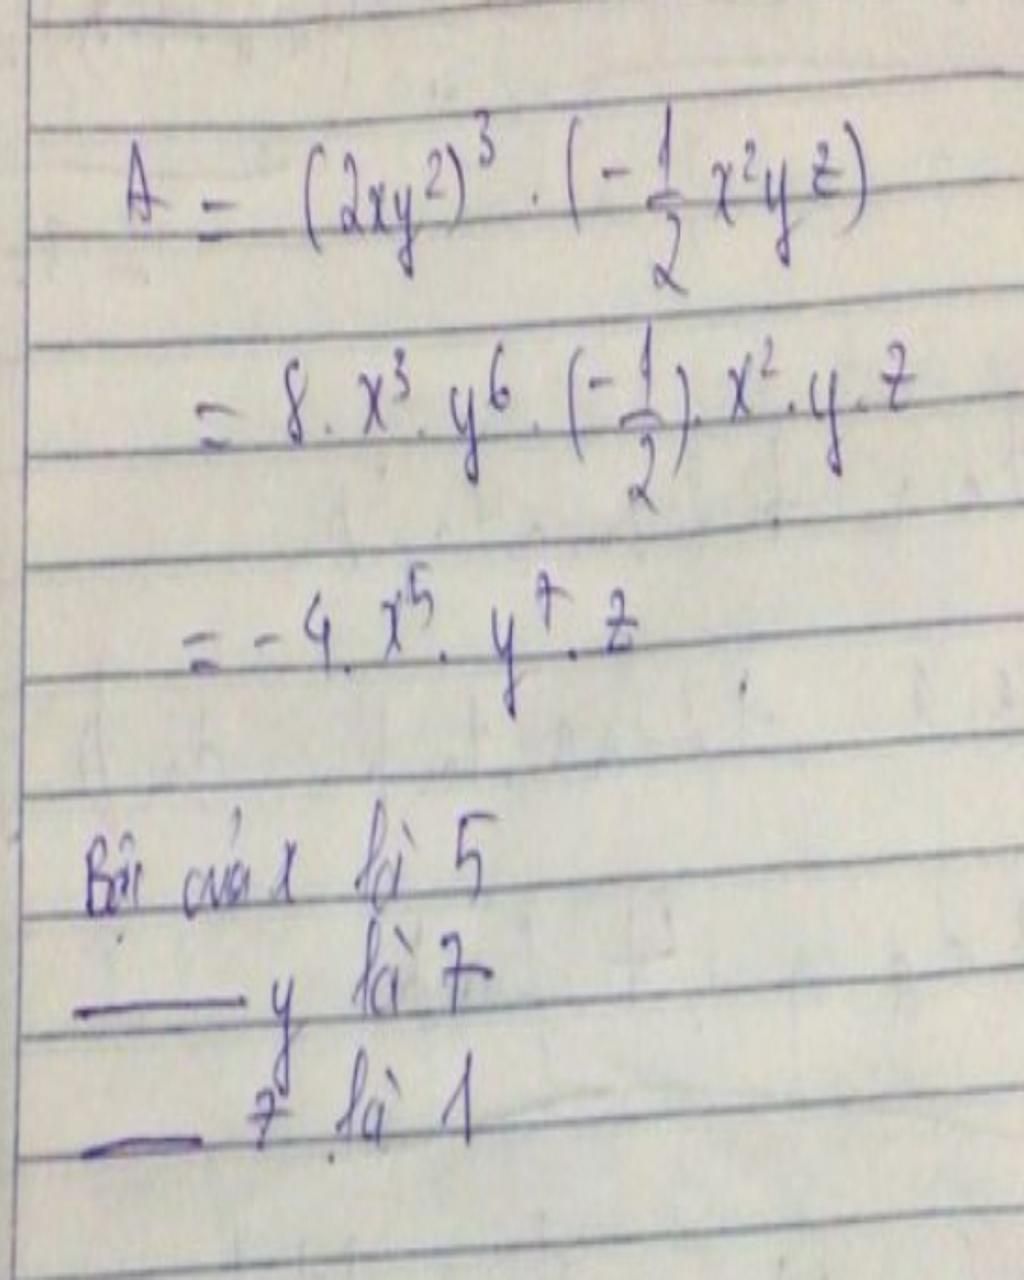 A = (2xy²)³ . (-1/2 x²yz)
= 8 . x³ . y⁶ . (-1/2) . x² . y . z
= -4 . x⁵ . y⁷ . z
Bậc của x là 5
—— y là 7
—— z là 1